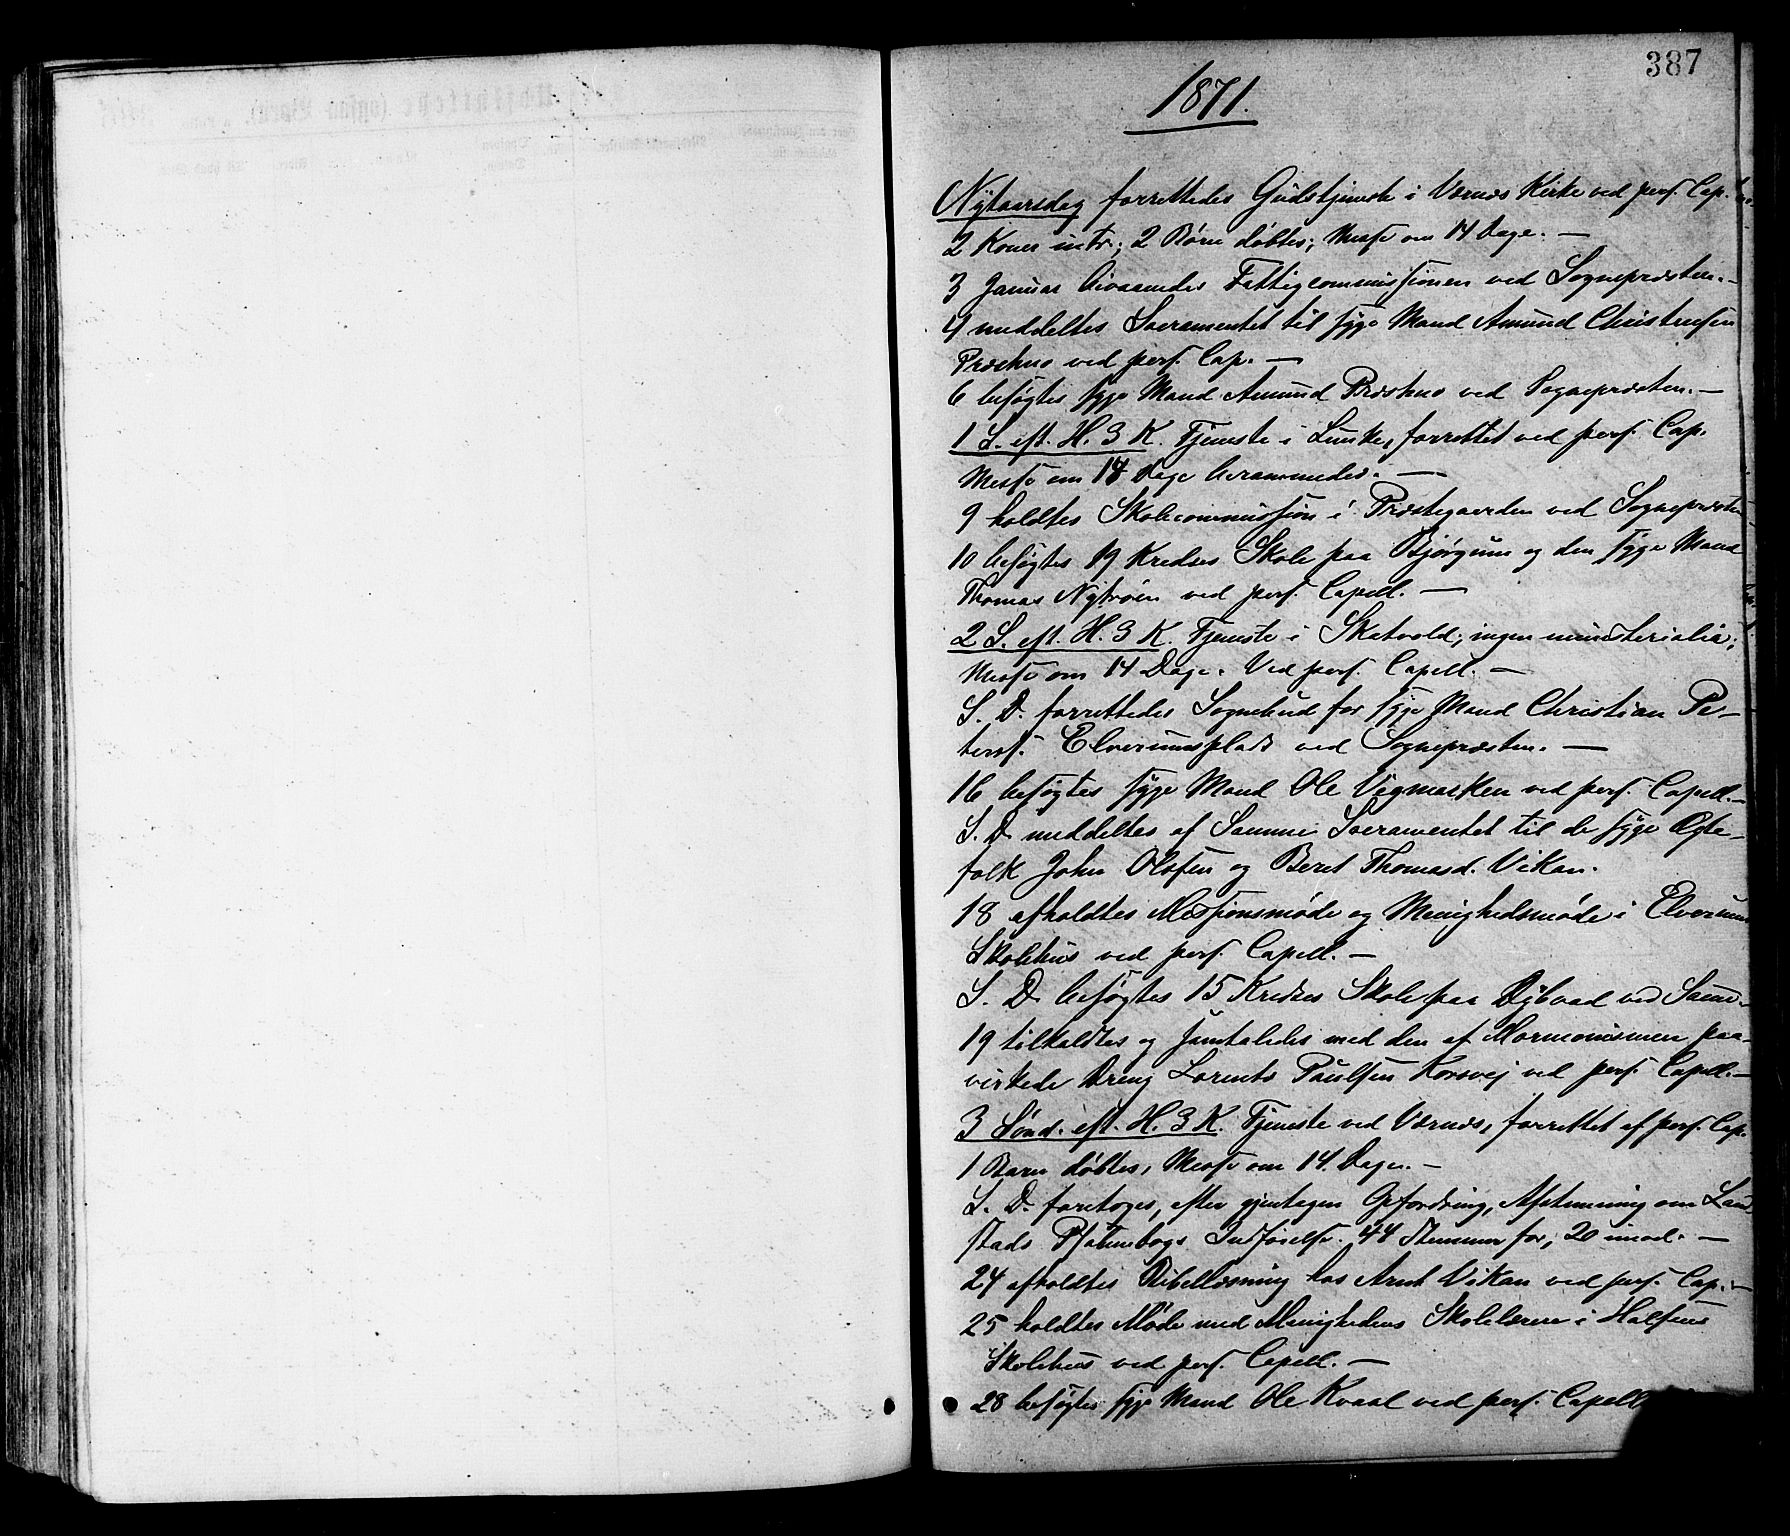 387
1871.
Nytaarsdag forrettedes Gudstjeneste i Værnes Kirke ved pers. Cap.
2 Koner intr.; 2 Børn døbtes; Messe om 14 Dage. —
3 Januar bivaanedes Fattigcommissionen ved Sognepræsten. —
4 meddeltes Sacramentet til syge Mand Amund Christensen
Præshus ved pers. Cap. —
6 besøgtes syge Mand Amund Præshus ved Sognepræsten. —
1 S. eft. H. 3 K. Tjeneste i Lunke, forrettet ved pers. Cap.
Messe om 14 Dage berammedes. —
9 holdtes Skolecommission i Præstegaarden ved Sognepræsten
10 besøgtes 19 Kredses Skole paa Bjørgum og den syge Mand
Thomas Nytrøen ved pers. Capell. —
2 S. eft. H. 3 K. Tjeneste i Skatvold; ingen ministerialia;
Messe om 14 Dage. Ved pers. Capell. —
S. D. forrettedes Sognebud for syge Mand Christian Pe-
ters. Elverumsplads ved Sognepræsten. —
16 besøgtes syge Mand Ole Vegmarken ved pers. Capell. —
S. D. meddeltes af Samme Sacramentet til de syge Ægte-
folk John Olssen og Beret Thomasd. Vikan.
18 afholdtes Missionsmøde og Menighedsmøde i Elverum
Skolehus ved pers. Capell. —
S. D. besøgtes 15 Kredses Skole paa Dybvad ved Samme
19 tilkaldtes og samtaledes med den af Mormonismen paa-
virkede Dreng Lorents Paulsen Korsvej ved pers. Capell. —
3 Sønd. eft. H. 3 K. Tjeneste ved Værnes, forrettet af pers. Cap.
1 Barn døbtes, Messe om 14 Dage. —
S. D. foretoges, efter gjentagen Opfordring, Afstemning om Land
stads Psalmebogs Indførelse. 44 Stemmer for, 20 imod. —
24 afholdtes Bibellæsning hos Arnt Vikan ved pers. Cap. —
25 holdtes Møde med Menighedens Skolelærere i Halsens
Skolehus ved pers. Capell. —
28 besøgtes syge Mand Ole Kvaal ved pers. Capell